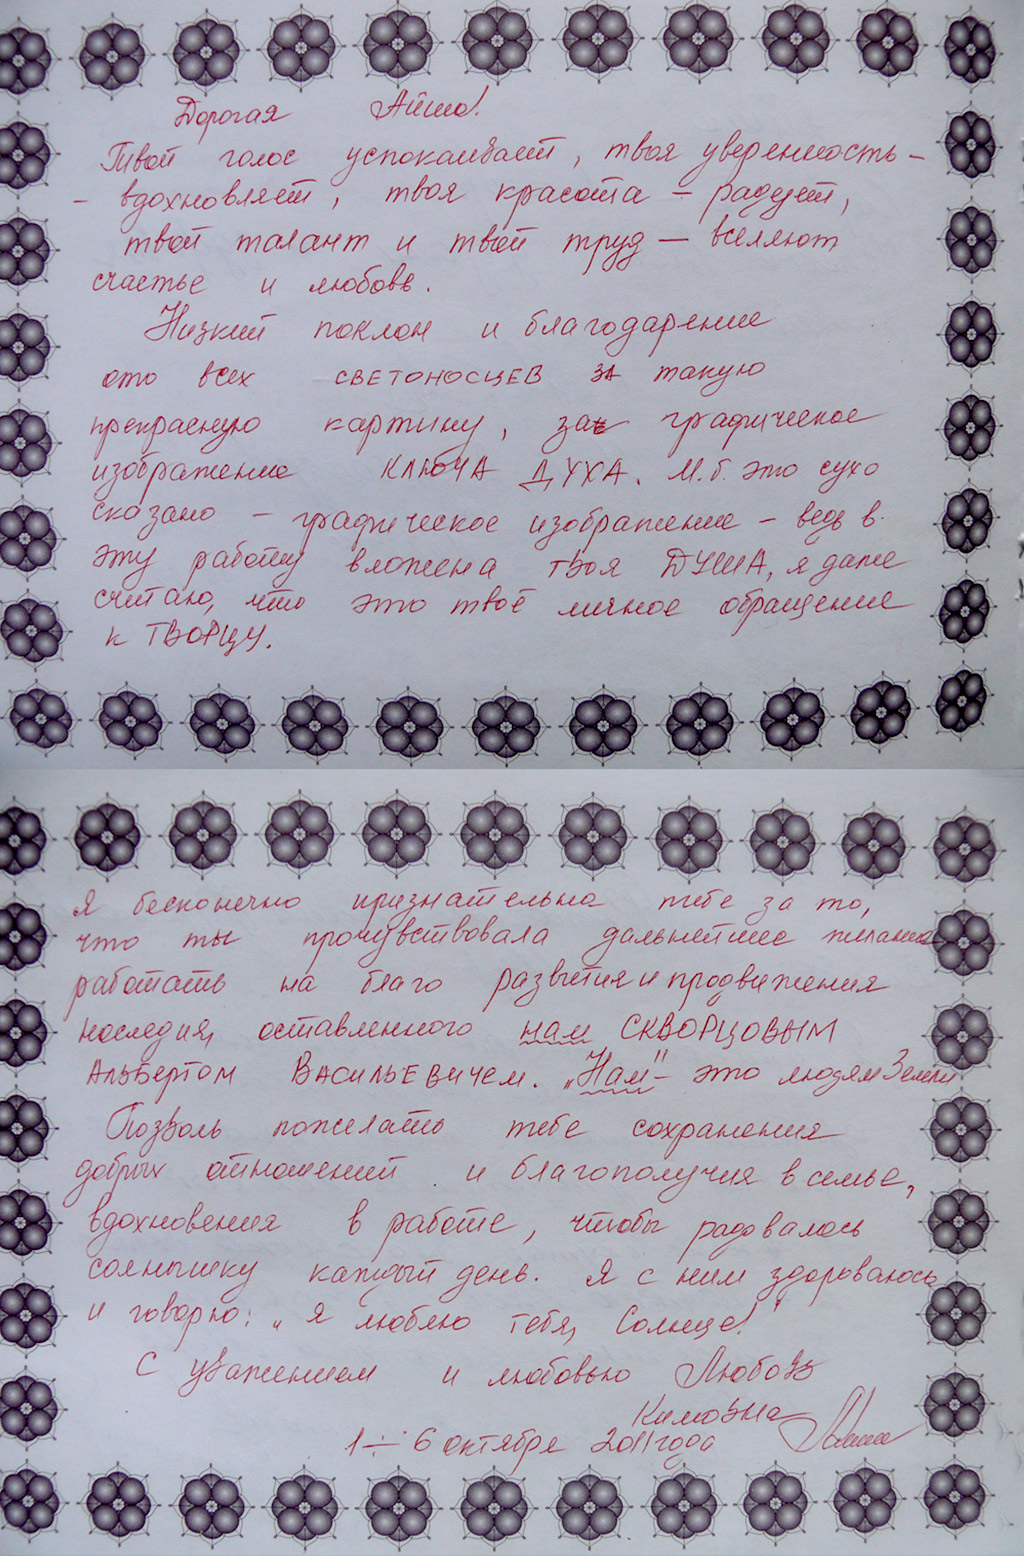 Дорогая Айша!
Твой голос успокаивает, твоя уверенность –
– вдохновляет, твоя красота – радует,
твой талант и твой труд — вселяют
счастье и любовь.
Низкий поклон и благодарение
ото всех СВЕТОНОСЦЕВ за такую
прекрасную картину, за графическое
изображение КЛЮЧА ДУХА. М.б. это сухо
сказано – графическое изображение – ведь в
эту работу вложена твоя ДУША, я даже
считаю, что это твоё личное обращение
к ТВОРЦУ.
Я бесконечно признательна тебе за то,
что ты прочувствовала дальнейшее желание
работать на благо развития и продвижения
наследия, оставленного нам СКВОРЦОВЫМ
Альбертом Васильевичем. „Нам" – это людям Земли
Позволь пожелать тебе сохранения
добрых отношений и благополучия в семье,
вдохновения в работе, чтобы радовалось
солнышку каждый день. Я с ним здороваюсь
и говорю: „Я люблю тебя, Солнце!"
С уважением и любовью Любовь
Кимовна
1 ÷ 6 октября 2011 года